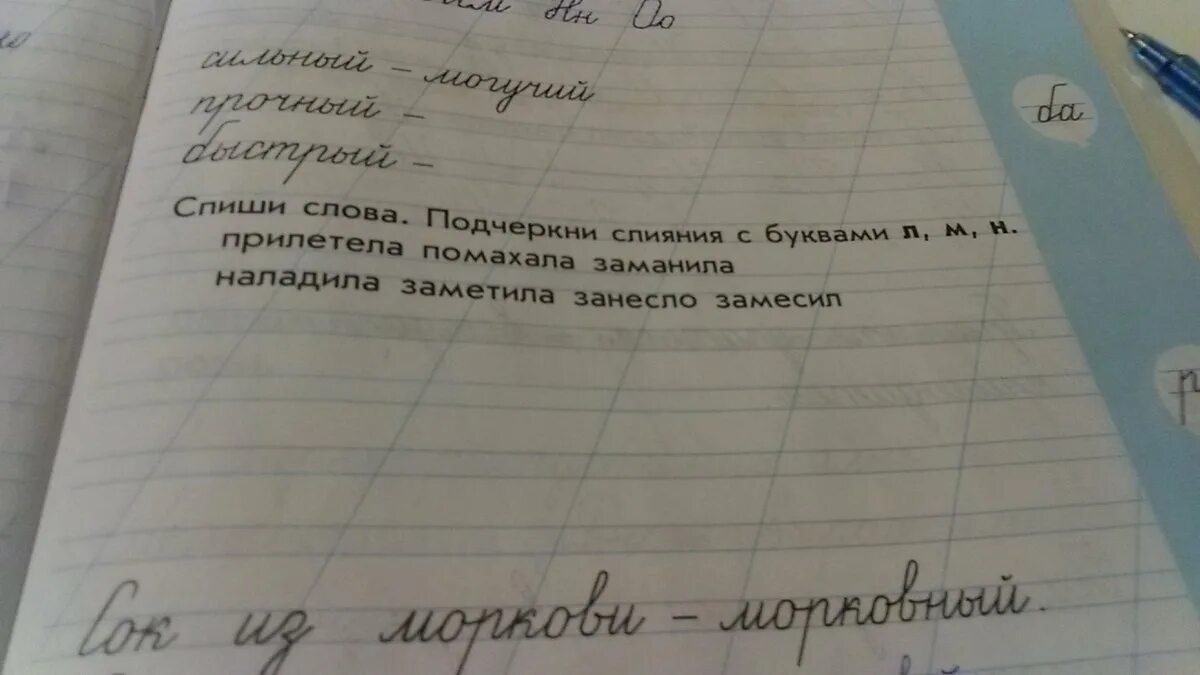 Нн Оо
сильный – могучий
прочный –
быстрый –
ба
Спиши слова. Подчеркни слияния с буквами л, м, н.
прилетела помахала заманила
наладила заметила занесло замесил
Сок из моркови – морковный.